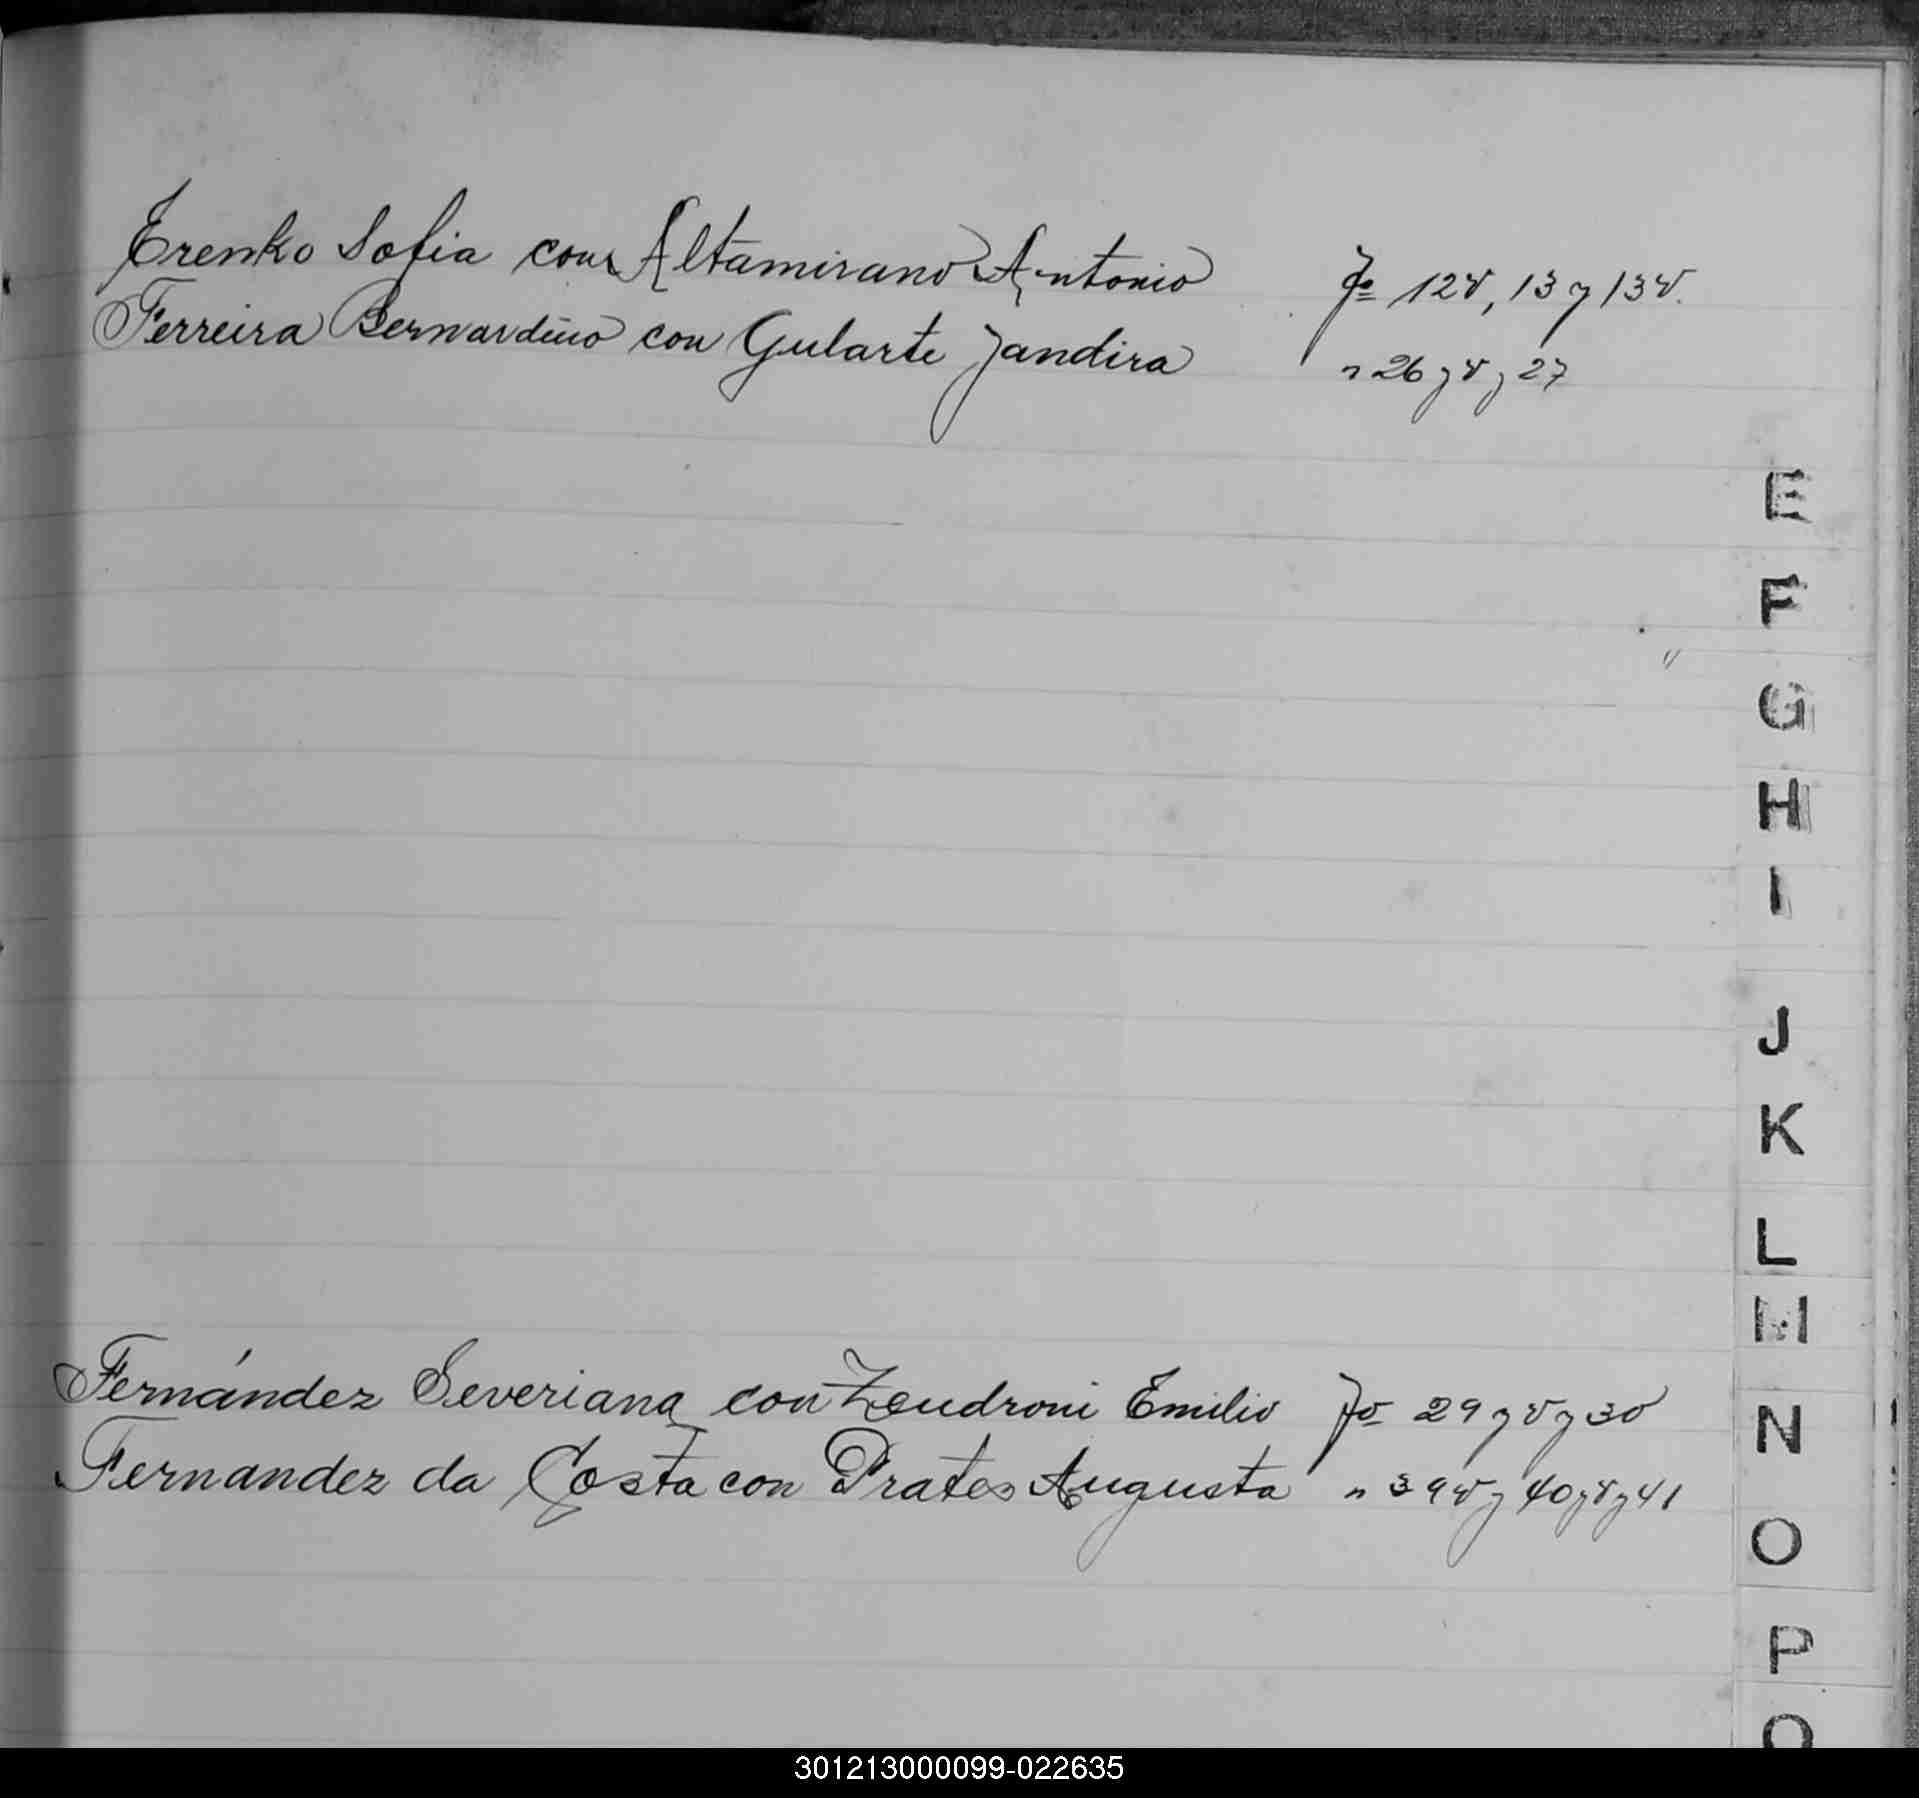 Erenko Sofia con Altamirano Antonio fo 12v, 13 y 13v.
Ferreira Bernardino con Gularte Jandira " 26 y v y 27
E
F
G
H
I
J
K
L
M
Fernández Severiana con Zendroni Emilio fo 29 y v y 30
N
Fernandez da Costa con Prates Augusta " 39v y 40 y v y 41
O
P
Q
301213000099-022635